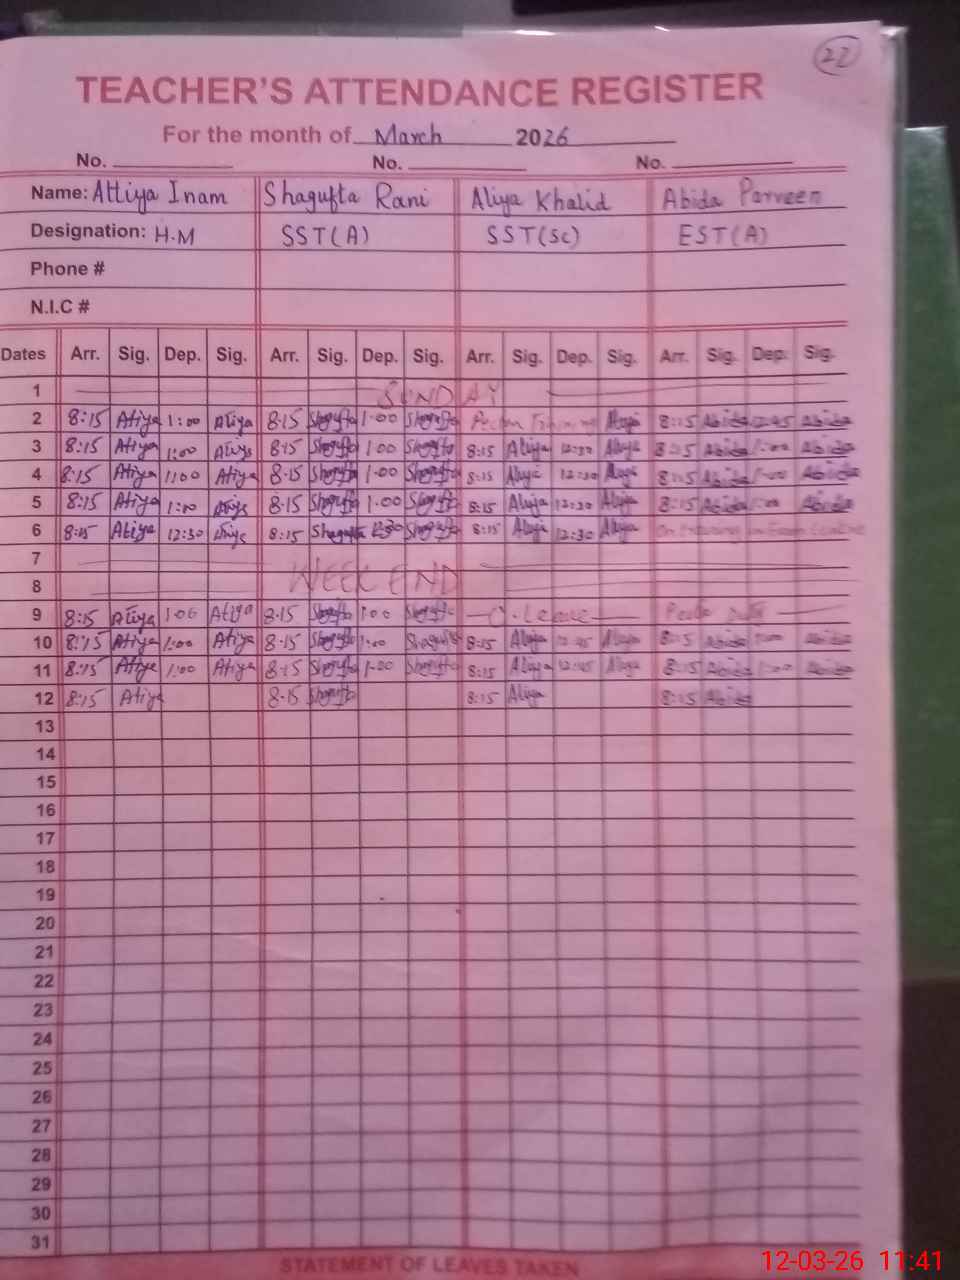 22
TEACHER'S ATTENDANCE REGISTER
For the month of March 2026
No. No. No.
Name: Attiya Inam Shagufta Rani Aliya Khalid Abida Parveen
Designation: H.M SST(A) SST(SC) EST(A)
Phone #
N.I.C #
Dates Arr. Sig. Dep. Sig. Arr. Sig. Dep. Sig. Arr. Sig. Dep. Sig. Arr. Sig. Dep. Sig.
1 SUNDAY
2 8:15 Atiya 1:00 Atiya 8:15 Shagufta 1:00 Shagufta 8:15 Abida 12:45 Abida
3 8:15 Atiya 1:00 Atiya 8:15 Shagufta 1:00 Shagufta 8:15 Aliya 12:30 Aliya 8:15 Abida 1:00 Abida
4 8:15 Atiya 1:00 Atiya 8:15 Shagufta 1:00 Shagufta 8:15 Aliya 12:30 Aliya 8:15 Abida 1:00 Abida
5 8:15 Atiya 1:00 Atiya 8:15 Shagufta 1:00 Shagufta 8:15 Aliya 12:30 Aliya 8:15 Abida 1:00 Abida
6 8:15 Atiya 12:30 Atiya 8:15 Shagufta 12:30 Shagufta 8:15 Aliya 12:30 Aliya On
7
WEEK END
8
9 8:15 Atiya 1:00 Atiya 8:15 Shagufta 1:00 Shagufta Leave
10 8:15 Atiya 1:00 Atiya 8:15 Shagufta 1:00 Shagufta 8:15 Aliya 12:45 Aliya 8:15 Abida 1:00 Abida
11 8:15 Atiya 1:00 Atiya 8:15 Shagufta 1:00 Shagufta 8:15 Aliya 12:45 Aliya 8:15 Abida 1:00 Abida
12 8:15 Atiya 8:15 Shagufta 8:15 Aliya 8:15 Abida
13
14
15
16
17
18
19
20
21
22
23
24
25
26
27
28
29
30
31
STATEMENT OF LEAVES TAKEN
12-03-26 11:41